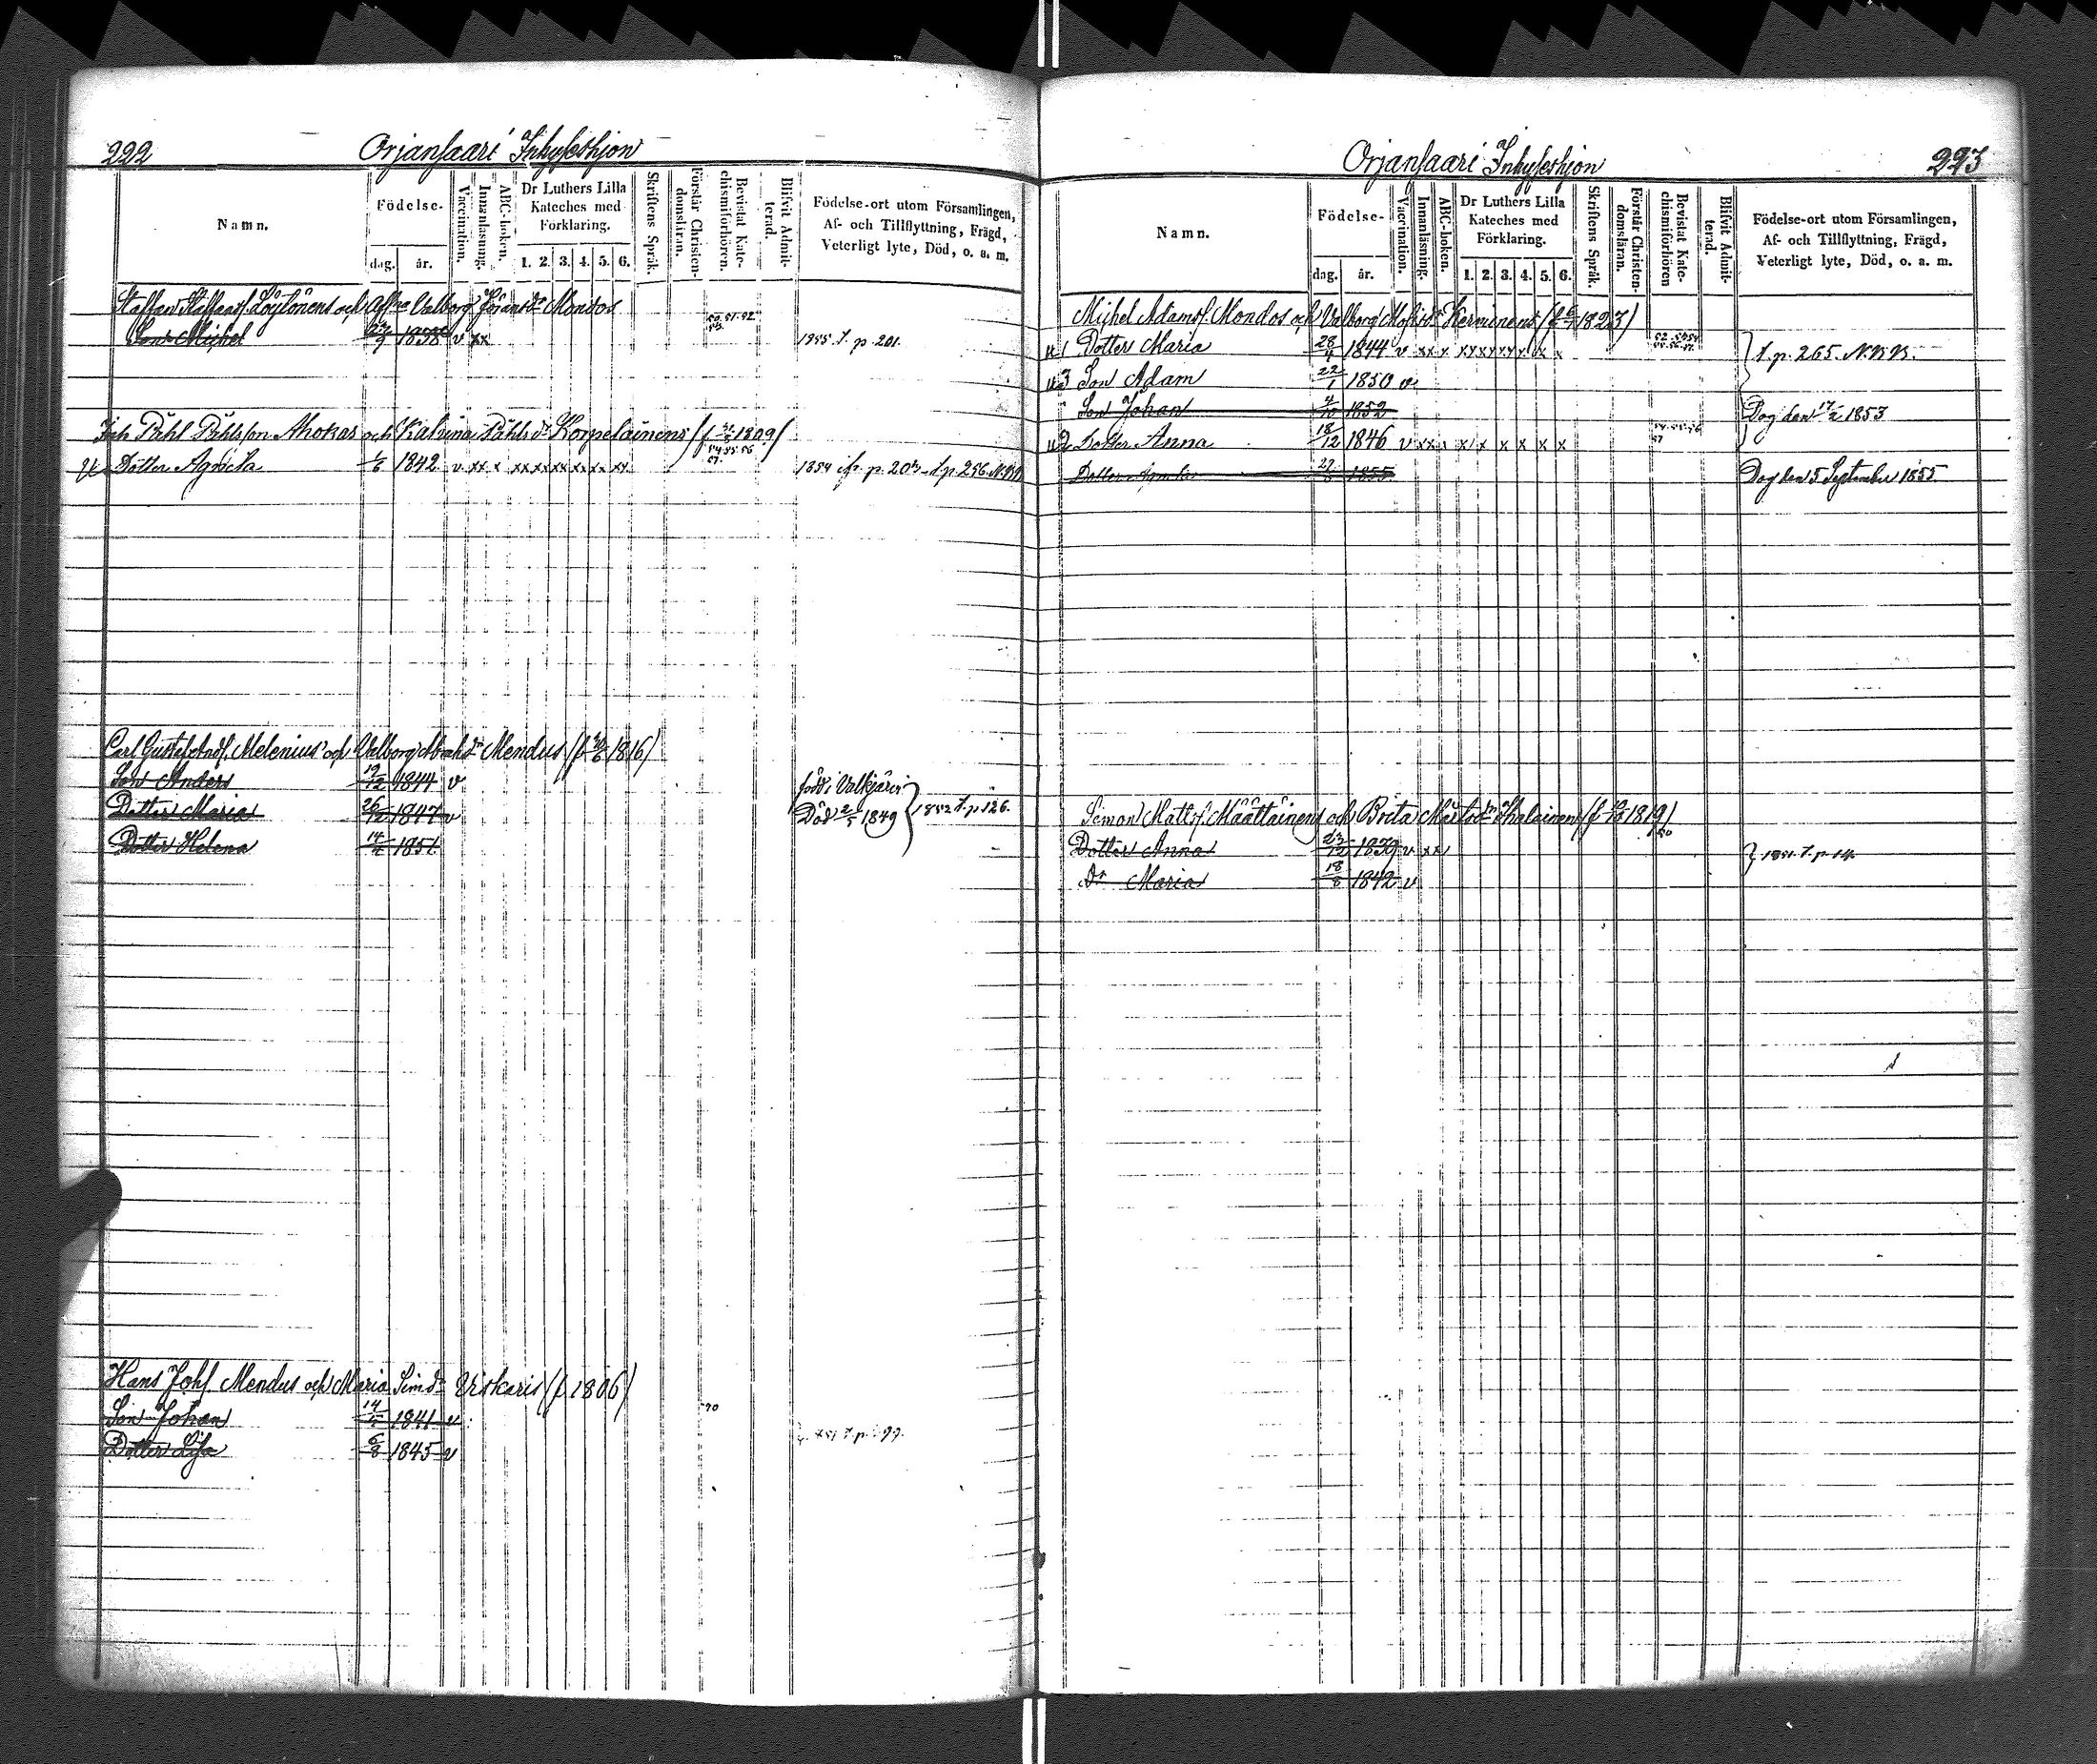 222 Orjansaari Inhyseshjon
Namn. Födelse- dag. år. Vaccination. Innanläsning. ABC-boken. Dr Luthers Lilla Kateches med Förklaring. 1. 2. 3. 4. 5. 6. Skriftens Språk. Förstår Christendomsläran. Bevistat Katechismiförhören. Blifvit Admitterad. Födelse-ort utom Församlingen, Af- och Tillflyttning, Frägd, Veterligt lyte, Död, o. a. m.
Staffan Staffansf. Löylönens och Valborg Göransdr Mondos
Son Michel 1838 v xx 1855. f. p. 201.
Inh Påhl Påhlsson Ahokas och Katrina Påhlsdr Korpelainens (f. 1809)
Dotter Agneta 1/6 1842 v xx x xx xx xx x x xx 54.55.56 57. 1854 p. 203 f. p. 256. N.B.
Carl Gustafsf. Melenius och Valborg dr Mendus (f. 1816)
Son Anders 19/12 1844 v född i Valkjärvi
Dotter Maria 26/12 1847 v Död 2/5 1849 1852 f. p. 126.
Dotter Helena 1851
Hans Johs. Mendus och Maria Simdr Viskaris (f. 1806)
Son Johan 1841 v
Dotter Lisa 6/8 1845 v
Orjansaari Inhyseshjon 223
Namn. Födelse- dag. år. Vaccination. Innanläsning. ABC-boken. Dr Luthers Lilla Kateches med Förklaring. 1. 2. 3. 4. 5. 6. Skriftens Språk. Förstår Christendomsläran. Bevistat Katechismiförhören Blifvit Admitterad. Födelse-ort utom Församlingen, Af- och Tillflyttning, Frägd, Veterligt lyte, Död, o. a. m.
Michel Adamsf. Mondos och Valborg Kerminens (f. 1823)
1 Dotter Maria 1844 v xx x xx xx xx x x x f. p. 265. N.B.
3 Son Adam 22/1 1850 v
Son Johan 4/10 1852 Dog den 17/2 1853
2 Dotter Anna 18/12 1846 v xx x x x x x x x
Dotter 1855 Dog den 5 September 1855
Simon Mattsf. Määttäinens och Brita Mårtsdr Ihalainen (f. 1819)
Dotter Anna 23/12 1839 v xx 1851. f. p. 14.
Dr Maria 18/8 1842 v